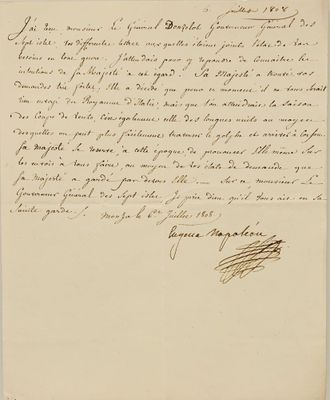 6 juillet 1808
J'ai reçu, monsieur le Général Donzelot Gouverneur Général des
Sept isles, vos différentes lettres auxquelles étaient joints états de vos
besoins en tout genre. J'attendais pour y répondre de connaître les
intentions de sa Majesté à cet égard. Sa Majesté a trouvé vos
demandes très fortes, Elle a décidé que pour ce moment il ne vous serait
rien envoyé du Royaume d'Italie; mais que l'on attendrait la saison
des coups de vents, conséquemment celle des longues nuits au moyen
desquelles on peut plus facilement traverser le golphe et arriver à Corfou.
Sa majesté se réserve à cette époque de prononcer Elle même sur
les envois à vous faire, au moyen de vos états de demande que
sa Majesté a gardé par devers Elle. Sur ce monsieur Le
Gouverneur Général des Sept isles, Je prie dieu qu'il vous ait en sa
Sainte garde.
Monza le 6 Juillet 1808.
Eugène Napoléon